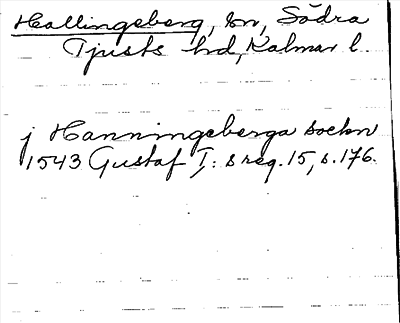 Hallingeberg, sn, Södra
Tjusts hd, Kalmar l.
j Hanningeberga sockn
1543 Gustaf I: s reg. 15, s. 176.